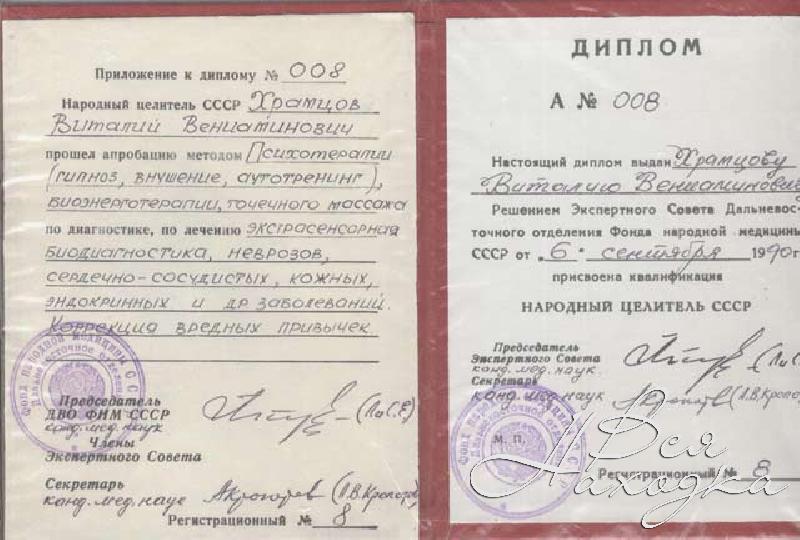 Приложение к диплому № 008
Народный целитель СССР Храмцов
Виталий Вениаминович
прошел апробацию методом Психотерапии
(гипноз, внушение, аутотренинг),
биоэнерготерапии, точечного массажа
по диагностике, по лечению экстрасенсорная
биодиагностика, неврозов,
сердечно-сосудистых, кожных,
эндокринных и др заболеваний.
Коррекция вредных привычек
Председатель
ДВО ФНМ СССР
канд. мед. наук
Члены
Экспертного Совета
Секретарь
канд. мед. наук
Регистрационный № 8
ДИПЛОМ
А № 008
Настоящий диплом выдан Храмцову
Виталию Вениаминович
Решением Экспертного Совета Дальневос-
точного отделения Фонда народной медицины
СССР от 6 сентября 1990г
присвоена квалификация
НАРОДНЫЙ ЦЕЛИТЕЛЬ СССР
Председатель
Экспертного Совета
канд. мед. наук.
Секретарь
канд. мед. наук
М. П.
Регистрационный № 8
Вся
Находка